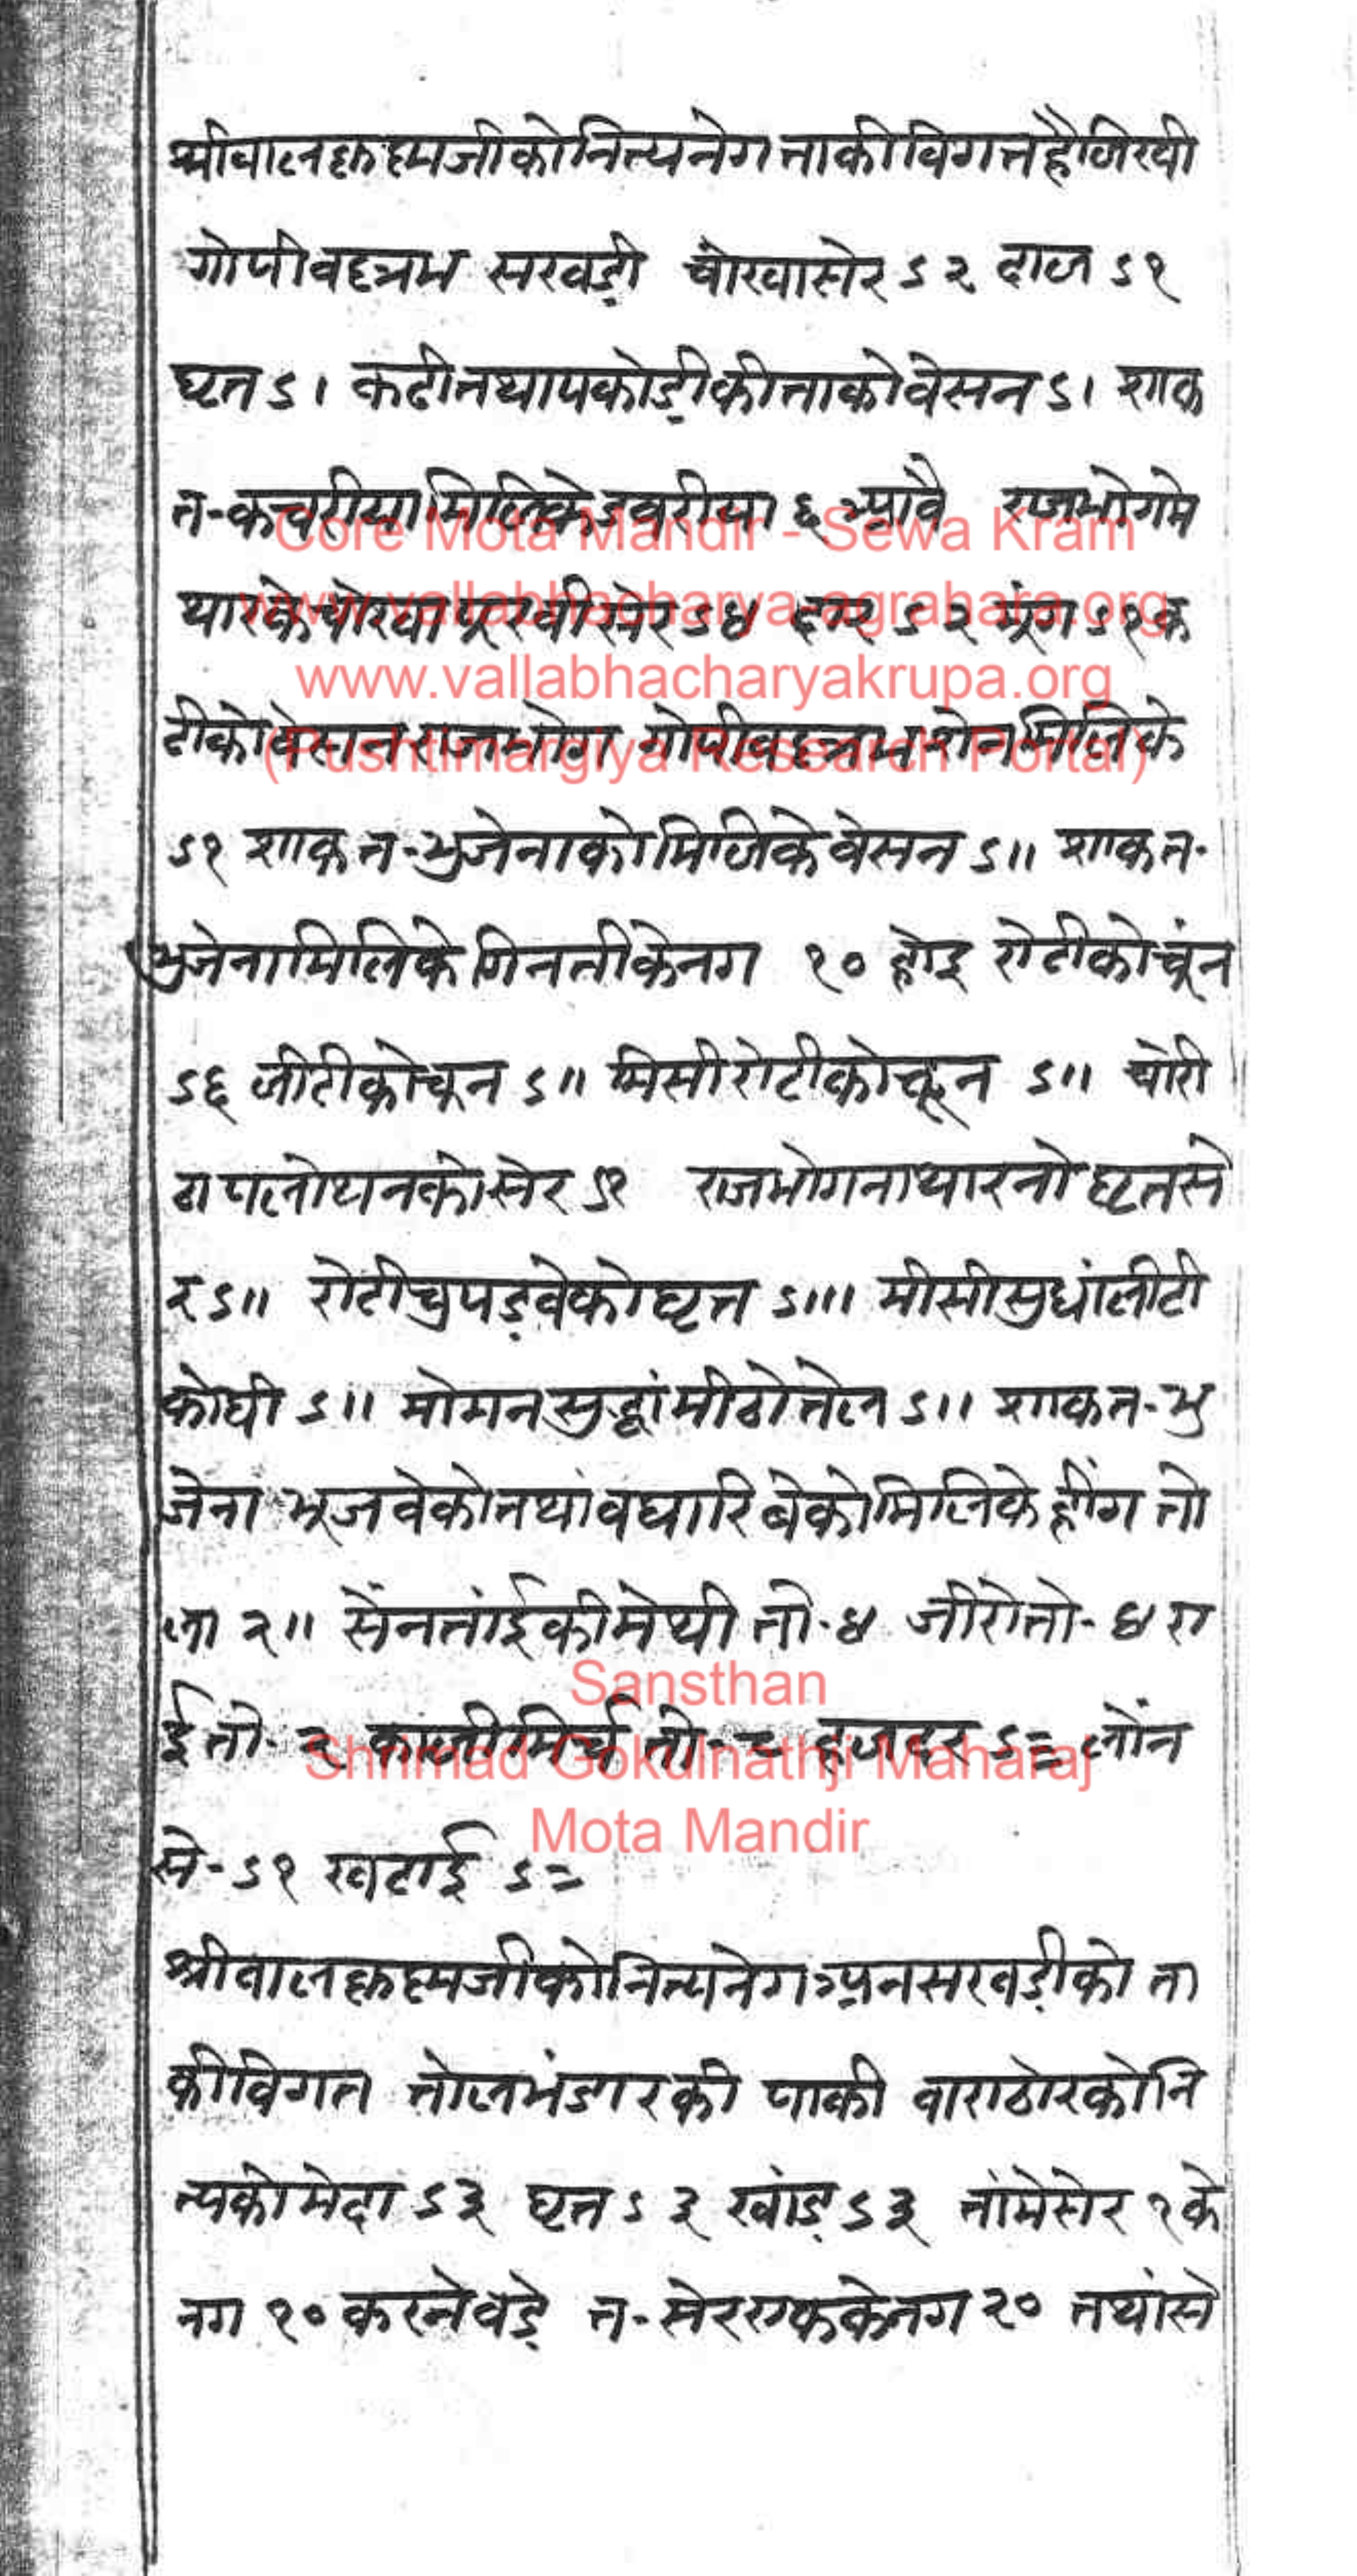 श्रीबालकृष्णजीको नित्य नेग ताकी विगत है लिखी
गोपीवल्लभ सखड़ी चोखा सेर ऽ२ दाल ऽ१
घृत ऽ। कढीतथा पकोड़ीकी ताको वेसन ऽ। शाक
त-कचरीया मिलिके डवरीया ६ आवै राजभोगमे
थारके चोखा सेर ऽ४ ऽ२ मूंग ऽ१ क
ढीको वेसन राजभोग गोपीवल्लभ सेन मिलिके
ऽ१ शाक त-भुजेनाको मिलिके वेसन ऽ॥ शाक त-
भुजेना मिलिके गिनतीके नग १० होइ रोटीको चूंन
ऽ६ लीटीको चून ऽ॥ मिसी रोटीको चून ऽ॥ चोरी
ठा पलोथनको सेर ऽ१ राजभोगना थारनो घृत से
र ऽ॥ रोटी चुपड़वेको घृत ऽ॥। मीसी सुधां लीटी
को घी ऽ॥ मोगन सुद्धां मीठो तेल ऽ॥ शाक त-भु
जेना भूजवेको तथां वघारिबेको मिलिके हींग तो
ला २॥ सेंन तांईकी मेथी तो-४ जीरो तो-४ रा
ई तो-२ काली मिर्च तो-२ हलदर ऽ= लोंन
से-ऽ१ खटाई ऽ=
श्रीबालकृष्णजीको नित्य नेग अनसखड़ीको ता
की विगत तोल भंडारकी पाकी वाराठोरको नि
त्यको मेदा ऽ३ घृत ऽ३ खांड़ ऽ३ तांमे सेर १ के
नग १० करने वड़े त-सेर एकके नग २० तथां से
Core Mota Mandir - Sewa Kram
www.vallabhacharya-agrahara.org
www.vallabhacharyakrupa.org
(Pushtimargiya Research Portal)
Sansthan
Shrimad Gokulnathji Maharaj
Mota Mandir